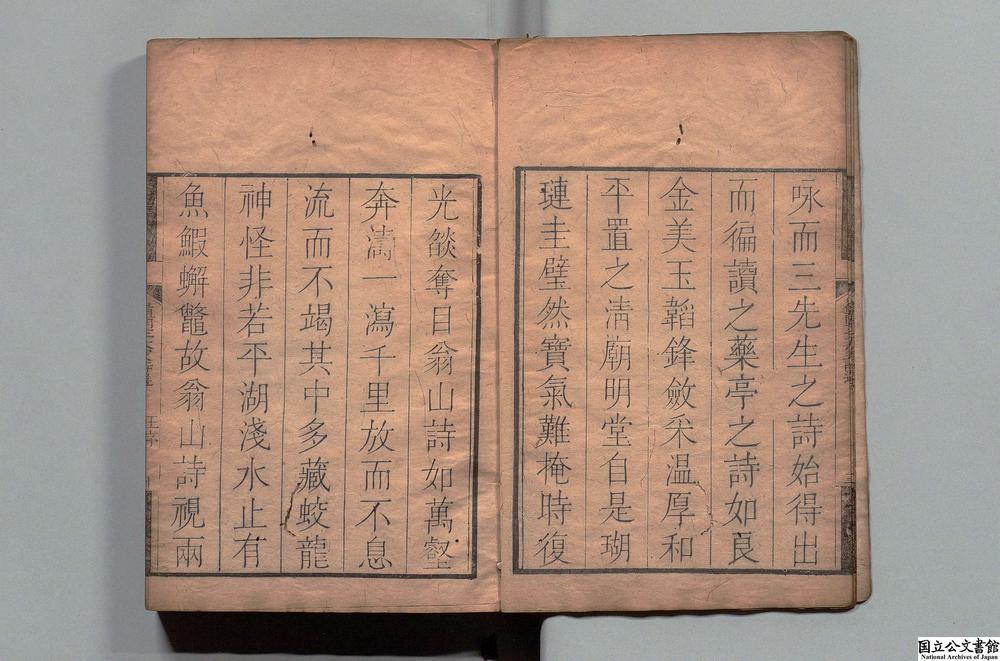 咏而三先生之詩始得出
而徧讀之藥亭之詩如良
金美玉韜鋒斂采温厚和
平置之淸廟明堂自是瑚
璉圭璧然寶氣難掩時復
光燄奪目翁山詩如萬壑
奔濤一瀉千里放而不息
流而不竭其中多藏蛟龍
神怪非若平湖淺水止有
魚鰕蠏鼈故翁山詩視兩
国立公文書館
National Archives of Japan